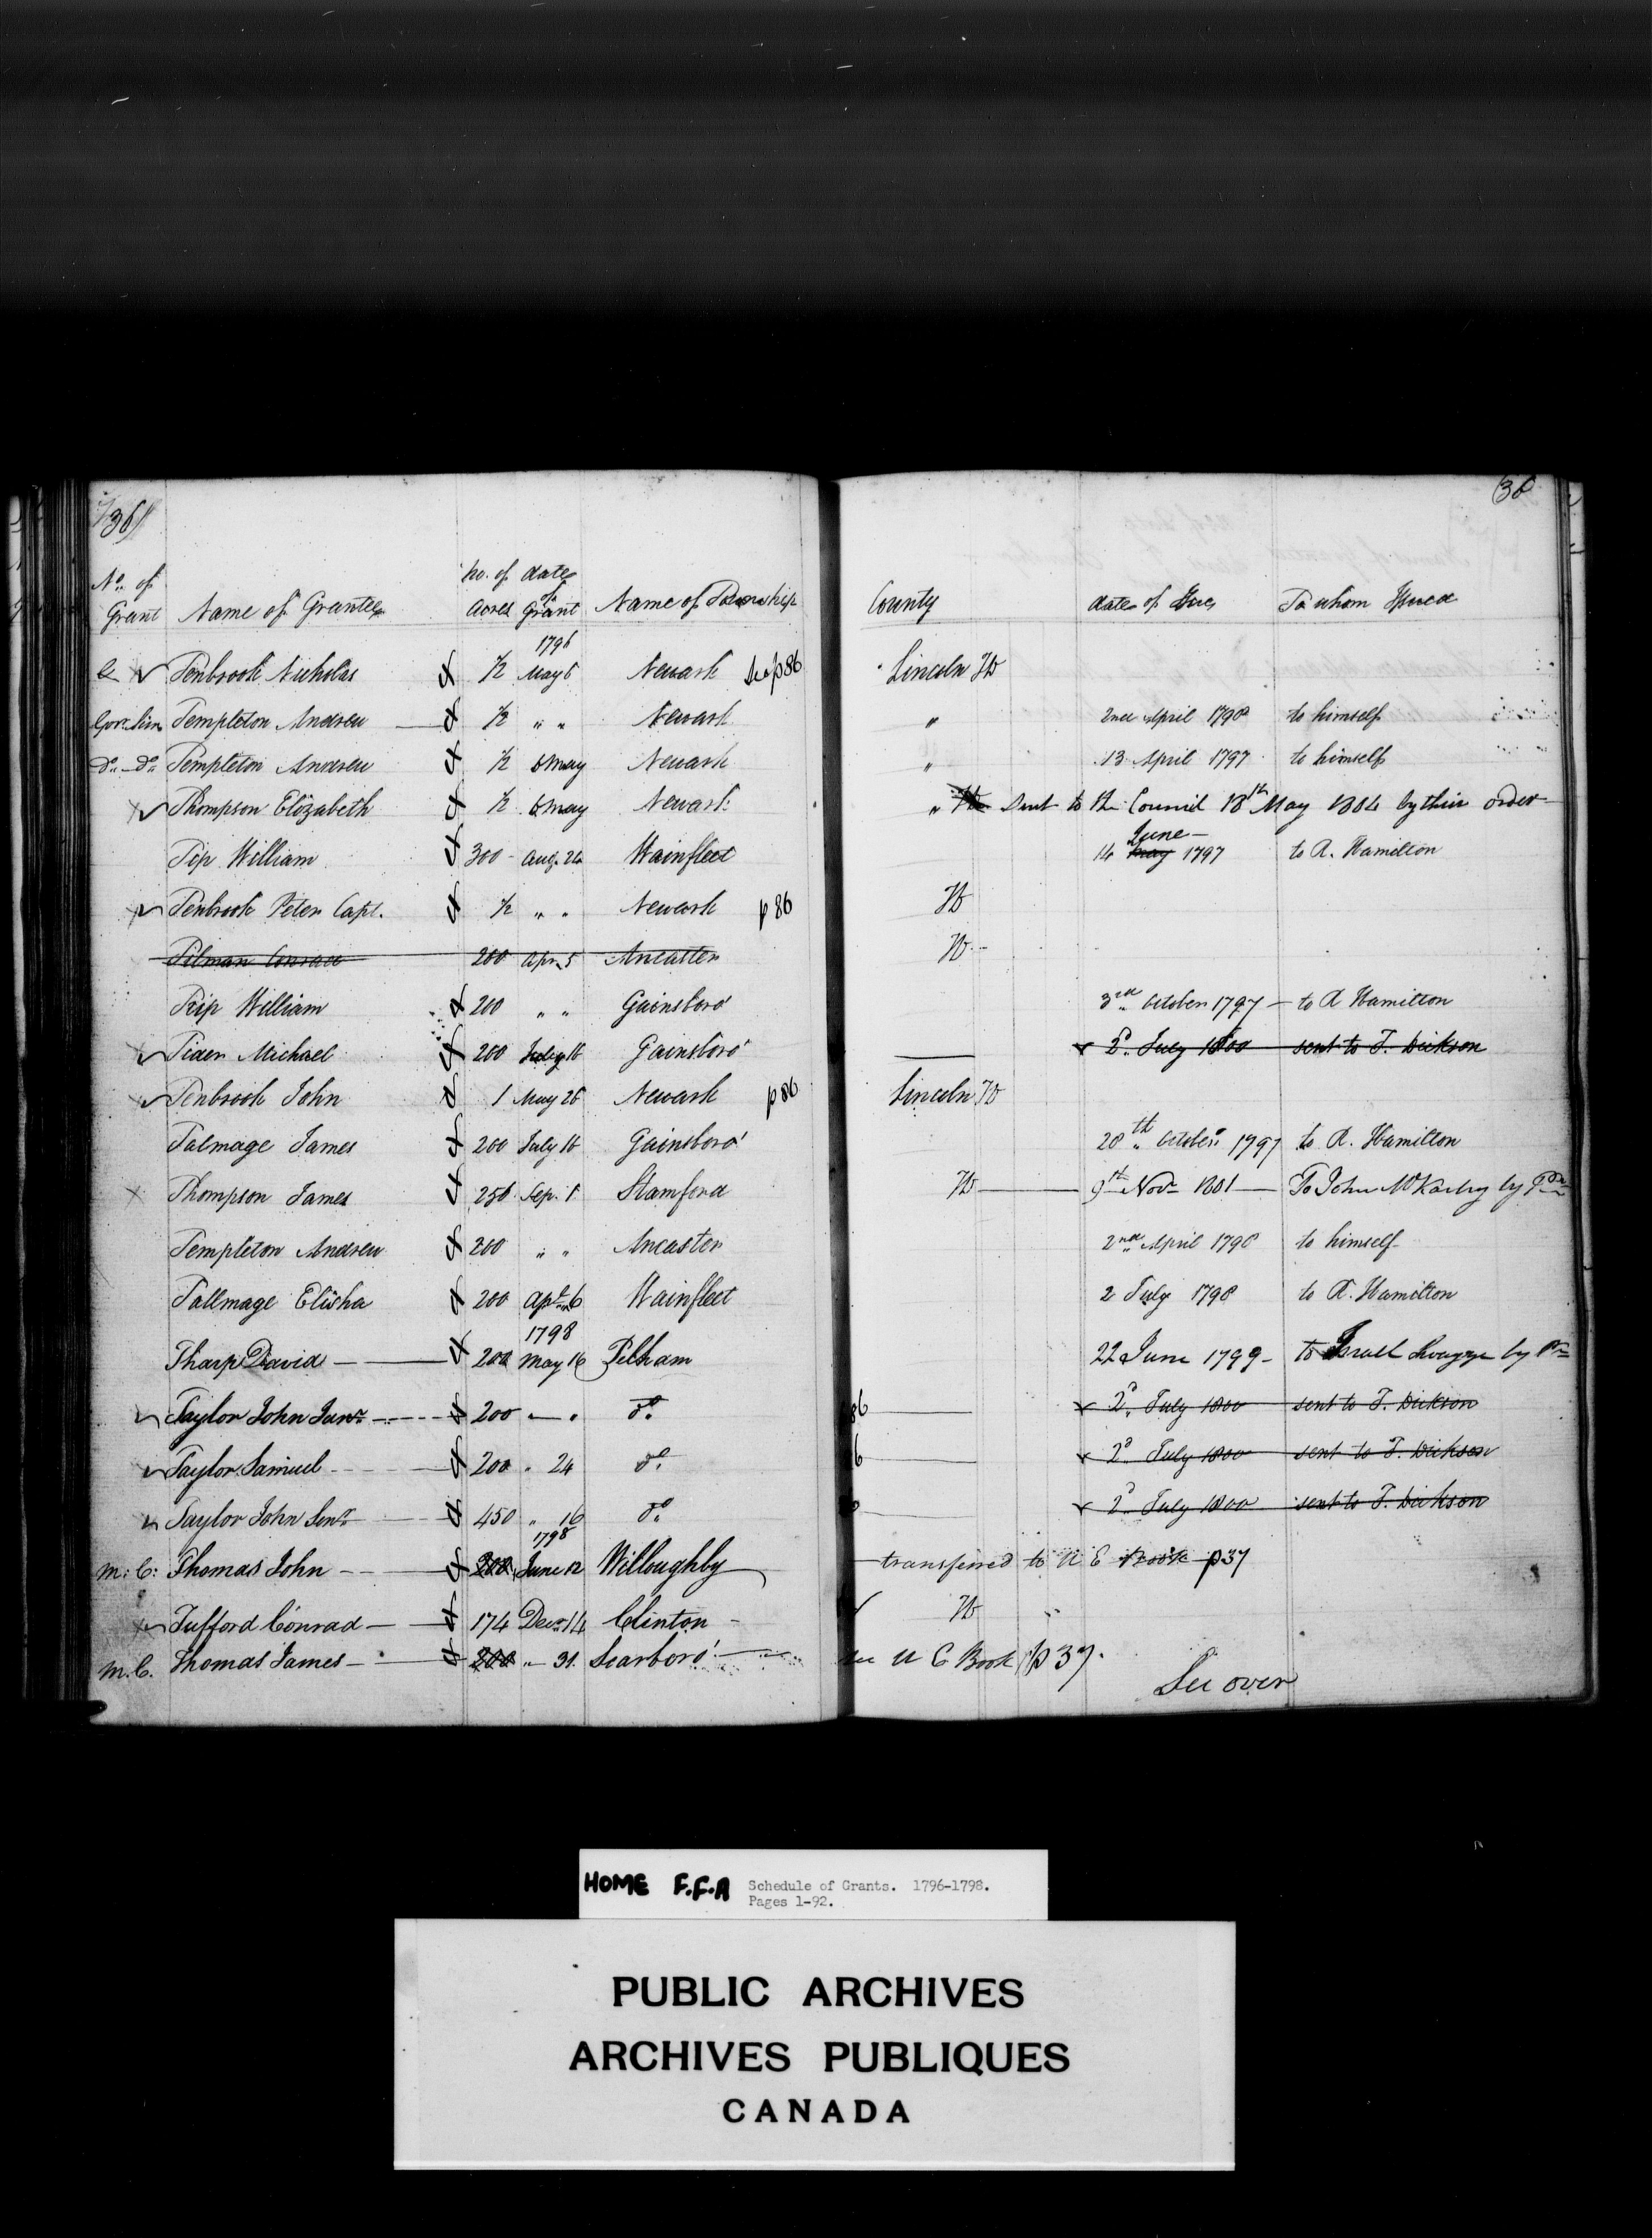 36
36
No. of Grant Name of Grantee no. of Acres date of Grant Name of Township County date of Issue To whom Issued
1796
Tenbrook Nicholas ½ May 6 Newark p86 Lincoln
Templeton Andrew ½ " " Newark " 2nd April 1798 to himself
Do. Do. Templeton Andrew ½ 6 May Newark " 13 April 1797 to himself
Thompson Elizabeth ½ 6 May Newark " sent to the Council 18th May 1804 by their order
June
Tip William 300 Aug. 24 Wainfleet 14 May 1797 to R. Hamilton
Tenbrook Peter Capt. ½ " " Newark p 86
Tilman Conrad 200 Apr. 5 Ancaster
Trip William 200 " " Gainsboro' 3rd October 1797 — to R Hamilton
Michael 200 July 16 Gainsboro' 2d. July 1800 sent to T. Dickson
Tenbrook John 1 May 26 Newark p86 Lincoln
Talmage James 200 July 16 Gainsboro' 20th October 1797 to R. Hamilton
Thompson James 256 Sep. 1 Stamford 9th Novr 1801 — To John by
Templeton Andrew 200 " " Ancaster 2nd April 1798 to himself
Tallmage Elisha 200 6 Wainfleet 2 July 1798 to R. Hamilton
1798
Tharp David — 200 May 16 Pelham 22 June 1799 - to Israel Swayze by
Taylor John Junr 200 — " Do. 2d. July 1800 sent to T. Dickson
Taylor Samuel 200 " 24 Do. 2d July 1800 sent to T. Dickson
Taylor John Senr 450 " 16 Do. 2d July 1800 sent to T. Dickson
1798
M: C: Thomas John 200 June 12 Willoughby transferred to U E Book p37
Tufford Conrad 174 Decr 14 Clinton
M. C. Thomas James 200 " 31. Scarboro' U E Book p 37.
See over
HOME F.F.A Schedule of Grants. 1796-1798.
Pages 1-92.
PUBLIC ARCHIVES
ARCHIVES PUBLIQUES
CANADA